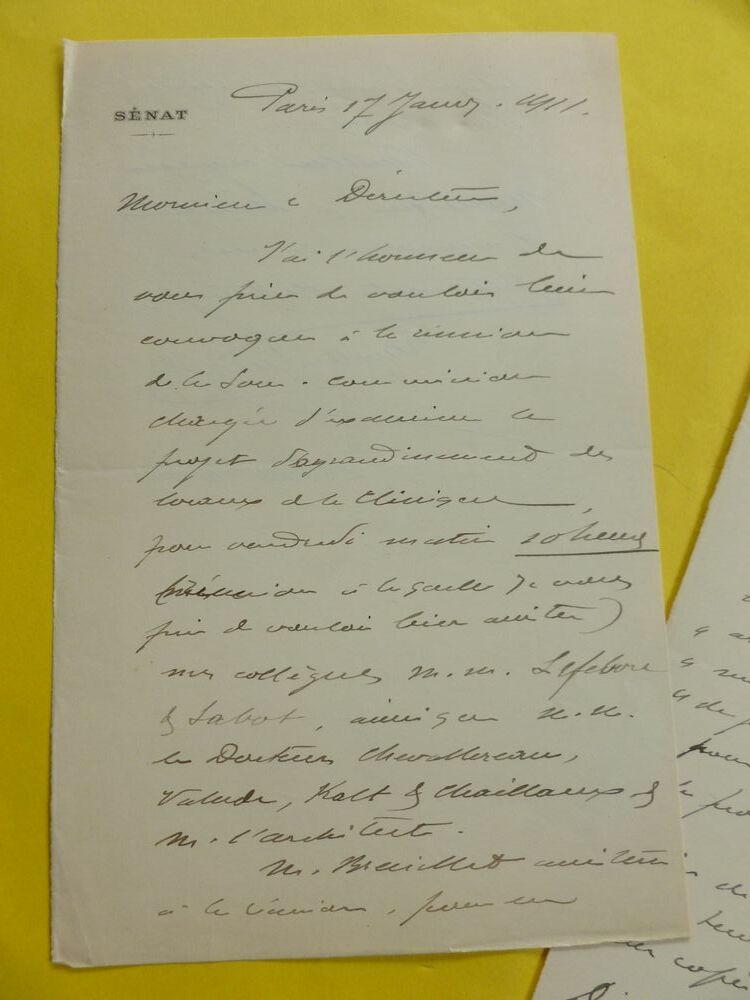 SÉNAT
Paris 17 Janv. 1911.
Monsieur le Directeur,
J'ai l'honneur de
vous prier de vouloir bien
convoquer à la réunion
de la Sous-commission
chargée d'examiner le
projet d'agrandissement des
locaux de la Clinique,
pour vendredi matin 10 heures
(réunion à laquelle je vous
prie de vouloir bien assister)
mes collègues M. M. Lefebvre
& Sabot, ainsi que M. M.
les Docteurs Chevallereau,
Valude, Kalt & Chaillous &
M. l'architecte.
M. assistera
à la réunion, pour